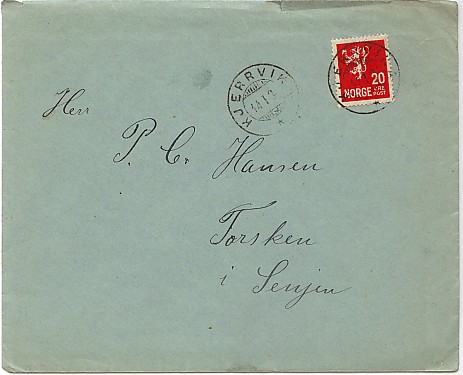 KJERRVIK
14 I 2
20
NORGE
POST
Herr
P. C. Hansen
Torsken
i Senjen